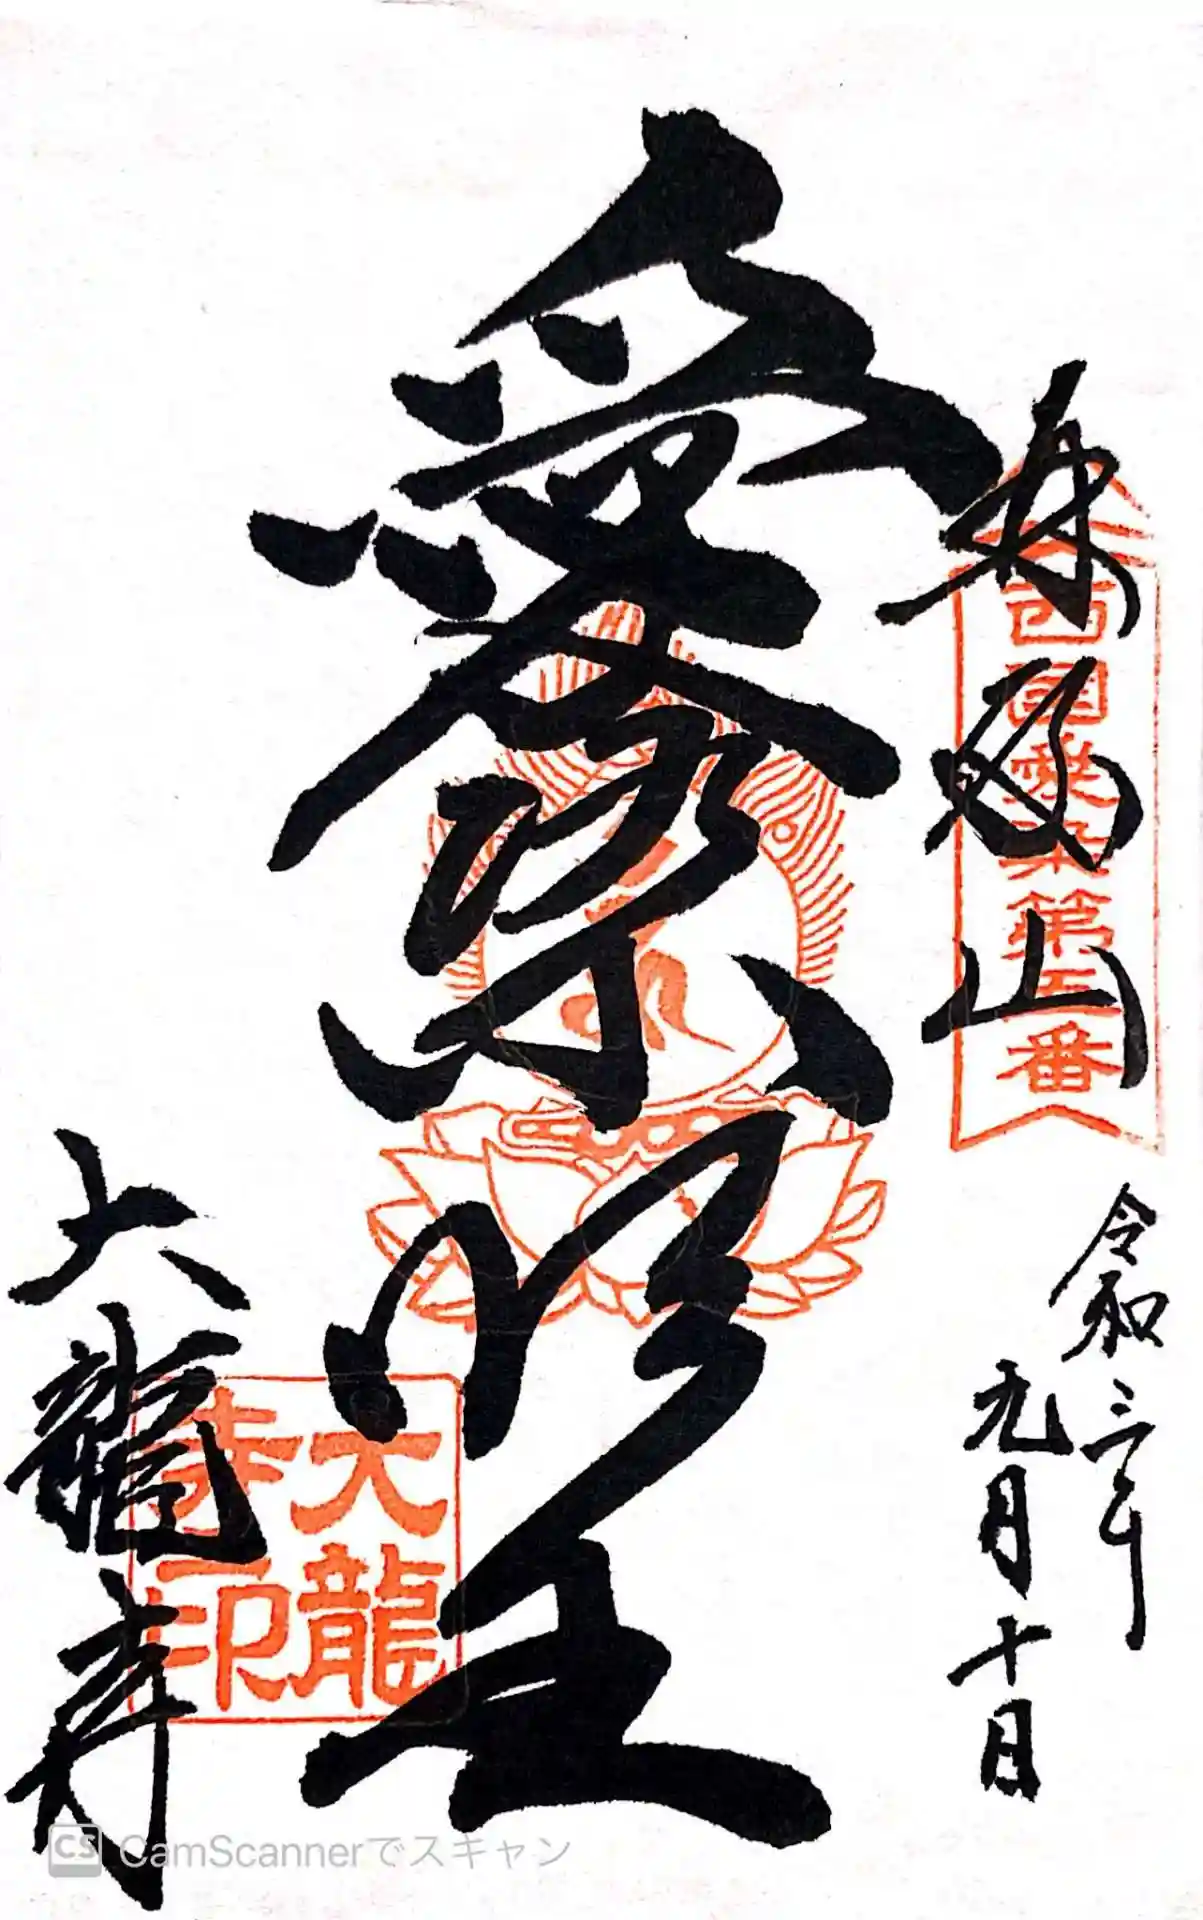 再度山
西國愛染第五番
令和三年
九月十日
愛染明王
大龍寺
大龍
寺印
CS CamScannerでスキャン